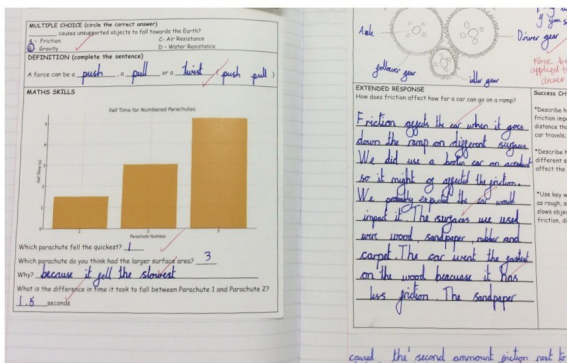 MULTIPLE CHOICE (circle the correct answer)
causes unsupported objects to fall towards the Earth?
A - Friction
C- Air Resistance
B Gravity
D - Water Resistance
DEFINITION (complete the sentence)
A force can be a push , a pull or a twist ( push pull )
MATHS SKILLS
Fall Time for Numbered Parachutes
Fall Time (s)
Parachute Number
Which parachute fell the quickest? 1
Which parachute do you think had the larger surface area? 3
Why? because it fell the slowest
What is the difference in time it took to fall between Parachute 1 and Parachute 2?
1.5 seconds
Axle
Driver gear
follower gear
idler gear
EXTENDED RESPONSE
How does friction affect how far a car can go on a ramp?
Friction affects the car when it goes
down the ramp on different surfaces
We did use a broken car on accident
so it might of affected the friction.
We probably expected the car would
impact it. The surfaces we used
were wood, sandpaper rubber and
carpet. The car went the fastest
on the wood because it has
less friction. The sandpaper
Success Crit
*Describe h
friction impa
distance tha
car travels
*Describe h
different s
affect the
*Use key w
as rough, s
slows objec
friction, di
caused the second ammount friction next to